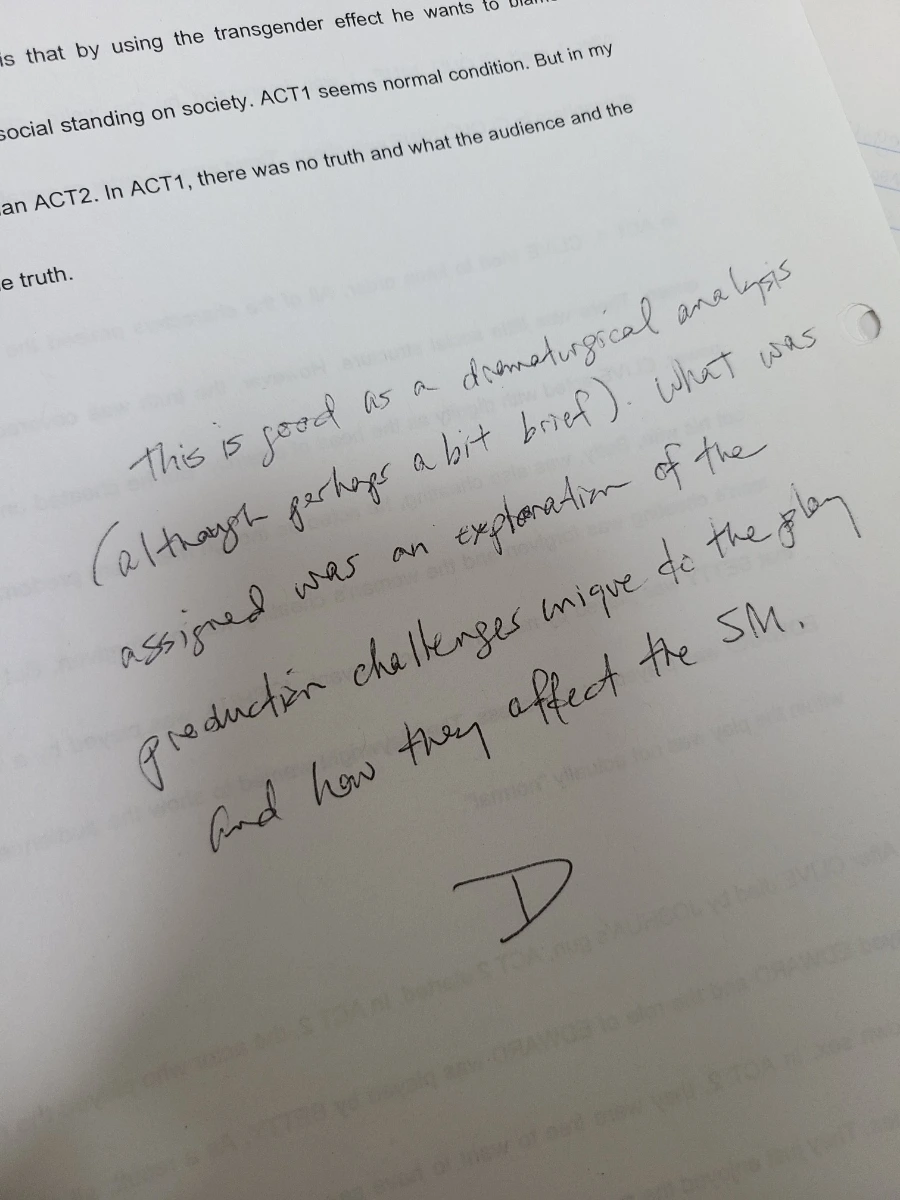 is that by using the transgender effect he wants to
social standing on society. ACT1 seems normal condition. But in my
an ACT2. In ACT1, there was no truth and what the audience and the
e truth.
This is good as a dramaturgical analysis
(although perhaps a bit brief). What was
assigned was an exploration of the
production challenges unique to the play
and how they affect the SM.
D